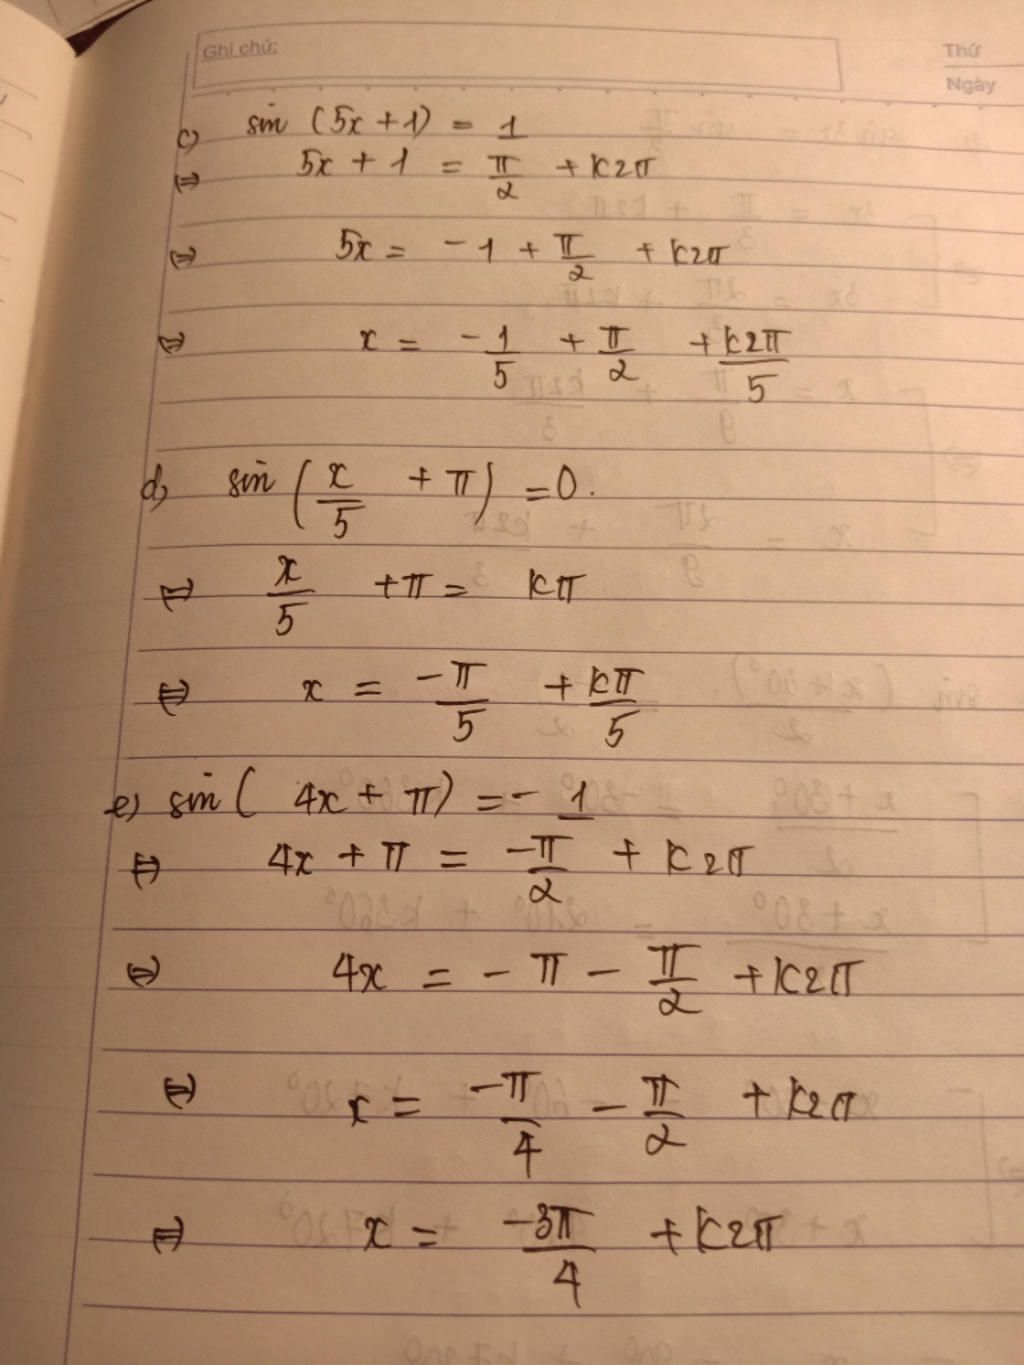 Ghi chú:
Thứ
Ngày
c) sin (5x + 1) = 1
⇔ 5x + 1 = π/2 + k2π
⇔ 5x = - 1 + π/2 + k2π
⇔ x = - 1/5 + π/2 + k2π/5
d) sin (x/5 + π) = 0.
⇔ x/5 + π = kπ
⇔ x = -π/5 + kπ/5
e) sin ( 4x + π) = - 1
⇔ 4x + π = -π/2 + k2π
⇔ 4x = - π - π/2 + k2π
⇔ x = -π/4 - π/2 + k2π
⇔ x = -3π/4 + k2π